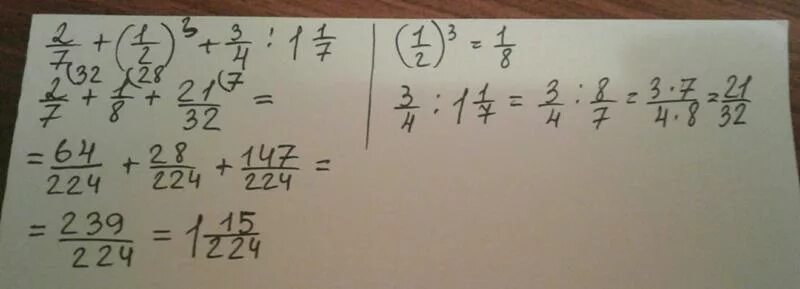 2/7 + (1/2)^3 + 3/4 : 1 1/7
2/7(32 + 1/8(28 + 21/32(7 =
= 64/224 + 28/224 + 147/224 =
= 239/224 = 1 15/224
(1/2)^3 = 1/8
3/4 : 1 1/7 = 3/4 : 8/7 = 3·7/4·8 = 21/32